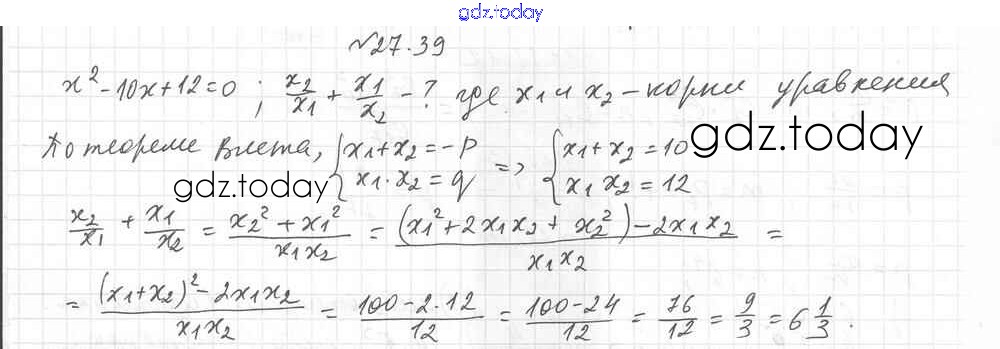 gdz.today
№27.39
x² - 10x + 12 = 0 ; x₂/x₁ + x₁/x₂ - ? где x₁ и x₂ - корни уравнения
По теореме Виета, { x₁ + x₂ = -p => { x₁ + x₂ = 10 gdz.today
gdz.today x₁ · x₂ = q x₁ x₂ = 12
x₂/x₁ + x₁/x₂ = (x₂² + x₁²)/(x₁x₂) = ((x₁² + 2x₁x₂ + x₂²) - 2x₁x₂)/(x₁x₂) =
= ((x₁+x₂)² - 2x₁x₂)/(x₁x₂) = (100 - 2·12)/12 = (100 - 24)/12 = 76/12 = 9/3 = 6 1/3 .